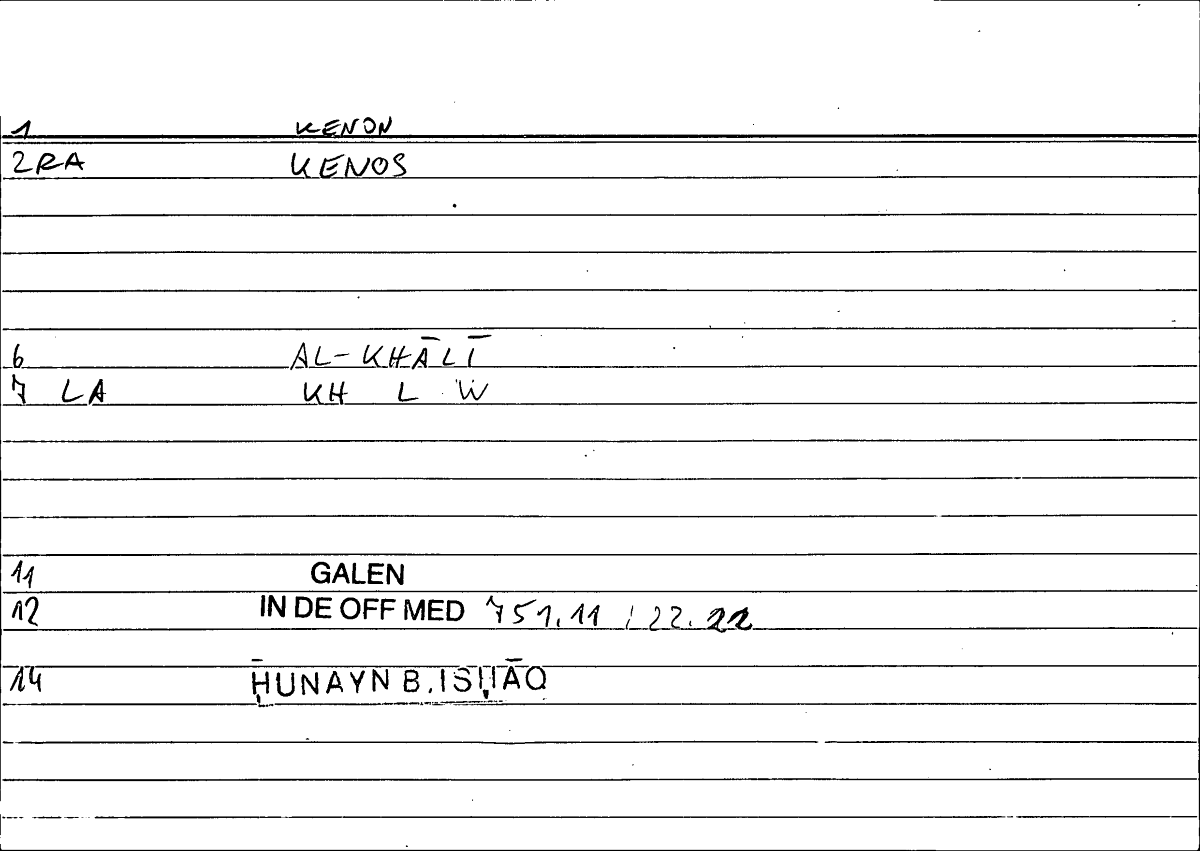 1 KENON
2RA KENOS
6 AL-KHĀLĪ
7 LA KH L W
11 GALEN
12 IN DE OFF MED 751.11 / 22.22
14 ḤUNAYN B. ISḤĀQ